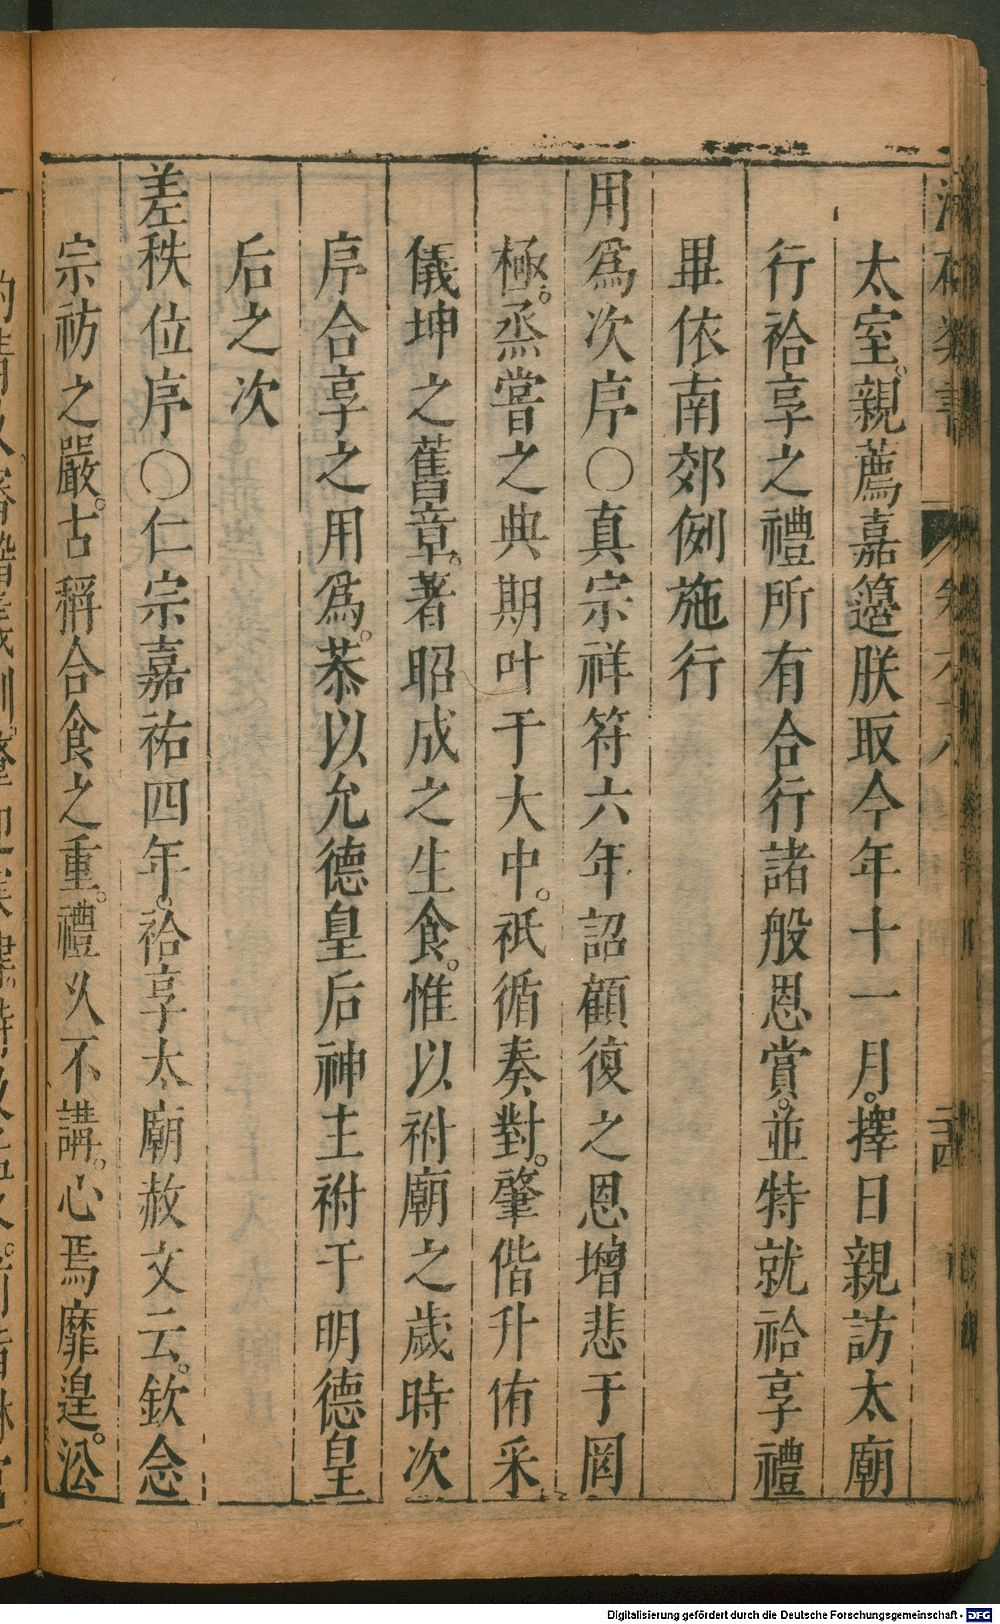 太室。親薦嘉籩朕取今年十一月。擇日親訪太廟
行祫享之禮所有合行諸般恩賞。並特就祫享禮
畢依南郊例施行
用爲次序〇真宗祥符六年詔顧復之恩增悲于罔
極。烝嘗之典期叶于大中。祇循奏對。肇偕升侑采
儀坤之舊章。著昭成之生食。惟以祔廟之歲時次
序合享之用爲。恭以允德皇后神主祔于明德皇
后之次
差秩位序〇仁宗嘉祐四年。祫享太廟赦文云。欽念
宗祊之嚴。古稱合食之重。禮久不講。心焉靡遑。訟
Digitalisierung gefördert durch die Deutsche Forschungsgemeinschaft - DFG